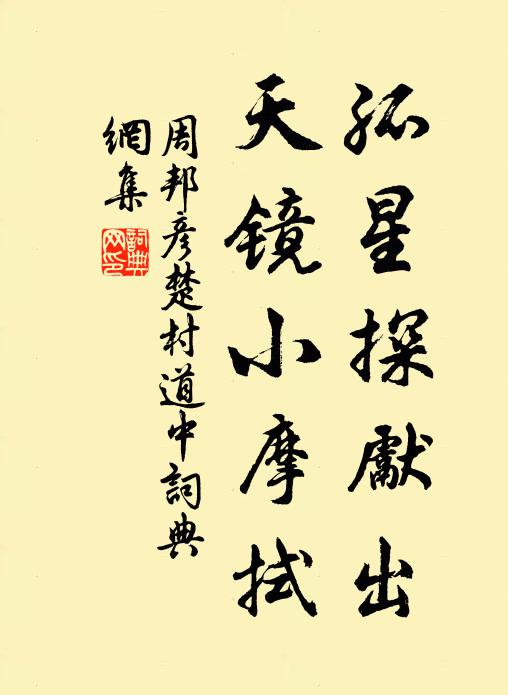 孤星探獻出
天镜小摩拭
周邦彦楚村道中詞典
網集
詞典网印